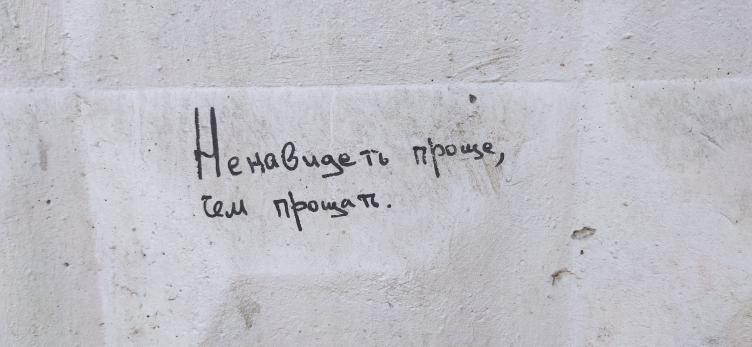 Ненавидеть проще,
чем прощать.